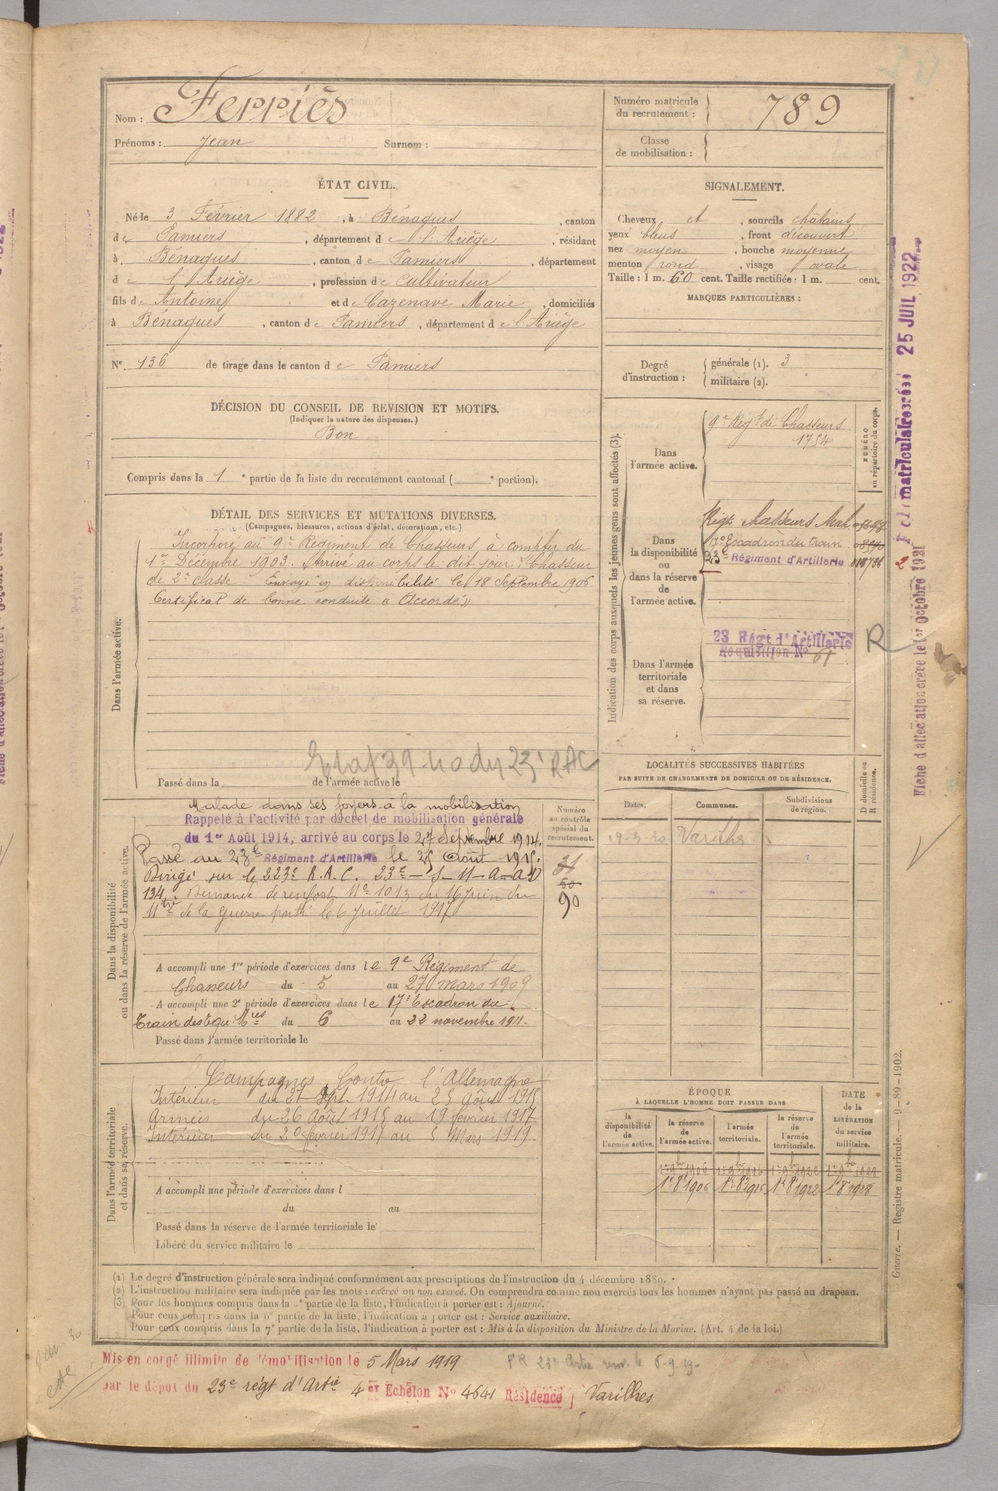 Nom : Ferriès
Prénoms : Jean Surnom :
Numéro matricule du recrutement : 789
Classe de mobilisation :
ÉTAT CIVIL.
Né le 3 Février 1882, à Bénagues, canton
de Pamiers, département de l'Ariège, résidant
à Bénagues, canton de Pamiers, département
d l'Ariège, profession de cultivateur
fils de Antoine et de Cazenave Marie, domiciliés
à Bénagues, canton de Pamiers, département de l'Ariège
N° 136 de tirage dans le canton de Pamiers
SIGNALEMENT.
Cheveux et, sourcils châtains
yeux bleus, front découvert
nez moyen, bouche moyenne
menton rond, visage ovale
Taille : 1 m. 60 cent. Taille rectifiée : 1 m. cent.
MARQUES PARTICULIÈRES :
Degré d'instruction : générale (1). 3
militaire (2).
DÉCISION DU CONSEIL DE REVISION ET MOTIFS.
(Indiquer la nature des dispenses.)
Bon
Compris dans la 1e partie de la liste du recrutement cantonal ( e portion).
DÉTAIL DES SERVICES ET MUTATIONS DIVERSES.
(Campagnes, blessures, actions d'éclat, décorations, etc.)
Dans l'armée active.
Incorporé au 9e Régiment de Chasseurs à compter du
1er Décembre 1903. Arrivé au corps le dit jour. Chasseur
de 2e classe. Envoyé en disponibilité le 18 Septembre 1906
Certificat de bonne conduite "Accordé"
Passé dans la de l'armée active le
Indication des corps auxquels les jeunes gens sont affectés (3).
NUMÉRO au répertoire du corps.
Dans l'armée active.
9e Régt de Chasseurs
1734
Dans la disponibilité ou dans la réserve de l'armée active.
17e Escadron du train
23e Régiment d'Artillerie
Dans l'armée territoriale et dans sa réserve.
23 Régt d'Artillerie
Réquisition N° 61
R
LOCALITÉS SUCCESSIVES HABITÉES
PAR SUITE DE CHANGEMENTS DE DOMICILE OU DE RÉSIDENCE.
Dates. Communes. Subdivisions de région. D domicile ou R résidence.
19-3-20 Varilhes
Dans la disponibilité ou dans la réserve de l'armée active.
Numéro au contrôle spécial du recrutement.
Malade dans ses foyers à la mobilisation
Rappelé à l'activité par décret de mobilisation générale
du 1er Août 1914, arrivé au corps le 27 Septembre 1914.
Passé au 23e Régiment d'Artillerie le 25 Août 1915.
Dirigé sur le 223e R.A.C.
134. Demande de renfort N° 1013 du 16 juin du
Mtre de la Guerre parti le 6 juillet 1917
90
A accompli une 1re période d'exercices dans le 9e Régiment de
Chasseurs du 5 au 27 mars 1909
A accompli une 2e période d'exercices dans le 17e Escadron du
Train des équ. Mres du 6 au 22 novembre 1911.
Passé dans l'armée territoriale le
Dans l'armée territoriale et dans sa réserve.
Campagnes Contre l'Allemagne
Intérieur du 27 Sept 1914 au 25 Août 1915
Armées du 26 Août 1915 au 19 février 1917
Intérieur du 20 février 1917 au 5 Mars 1919
A accompli une période d'exercices dans l
du au
Passé dans la réserve de l'armée territoriale le
Libéré du service militaire le
ÉPOQUE
À LAQUELLE L'HOMME DOIT PASSER DANS
la disponibilité de l'armée active.
la réserve de l'armée active.
l'armée territoriale.
la réserve de l'armée territoriale.
DATE de la LIBÉRATION du service militaire.
(1) Le degré d'instruction générale sera indiqué conformément aux prescriptions de l'instruction du 4 décembre 1889.
(2) L'instruction militaire sera indiquée par les mots : exercé ou non exercé. On comprendra comme non exercés tous les hommes n'ayant pas passé au drapeau.
(3) Pour les hommes compris dans la 5e partie de la liste, l'indication à porter est : Ajourné.
Pour ceux compris dans la 6e partie de la liste, l'indication a porter est : Service auxiliaire.
Pour ceux compris dans la 7e partie de la liste, l'indication à porter est : Mis à la disposition du Ministre de la Marine. (Art. 4 de la loi.)
Mis en congé illimité de démobilisation le 5 Mars 1919
par le dépôt du 23e régt d'Artie 4er Echelon N° 4641 Résidence Varilhes
Guerre. — Registre matricule. — 9-89-1902.
25 JUIL 1922
Fiche d'affectation créée le 1er octobre 1921